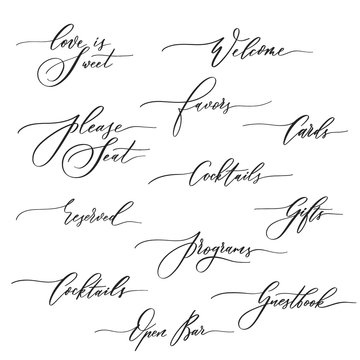 love is
Sweet
Welcome
favors
Please
Seat
Cards
Cocktails
reserved
Gifts
programs
Cocktails
Guestbook
Open Bar